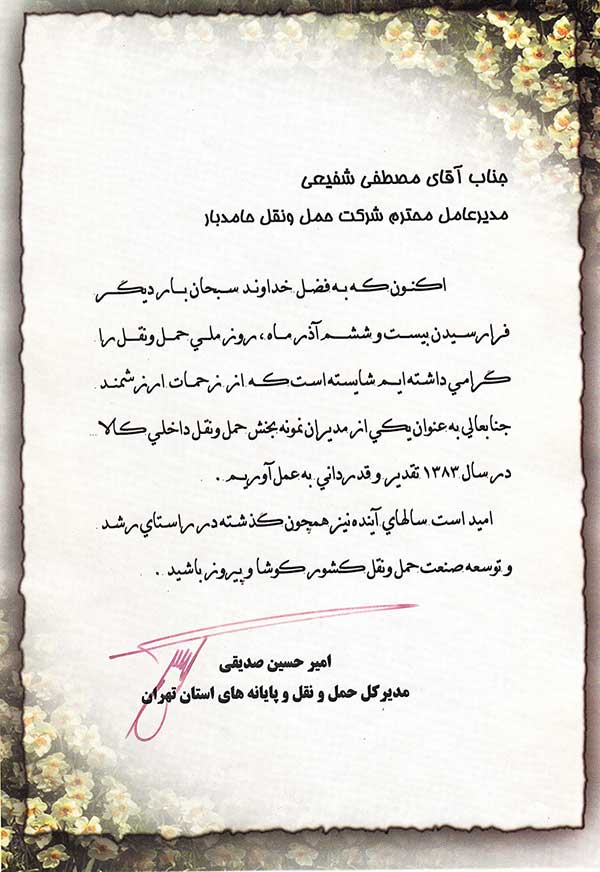 جناب آقای مصطفی شفیعی
مدیرعامل محترم شرکت حمل ونقل حامدبار
اکنون که به فضل خداوند سبحان بار دیگر
فرارسیدن بیست و ششم آذر ماه، روز ملي حمل ونقل را
گرامي داشته ایم شایسته است که از زحمات ارزشمند
جنابعالي به عنوان یکي از مدیران نمونه بخش حمل ونقل داخلي کالا
در سال ۱۳۸۳ تقدیر و قدرداني به عمل آوریم .
امید است سالهاي آینده نیز همچون گذشته در راستاي رشد
و توسعه صنعت حمل ونقل کشور کوشا و پیروز باشید .
امیر حسین صدیقی
مدیرکل حمل و نقل و پایانه های استان تهران